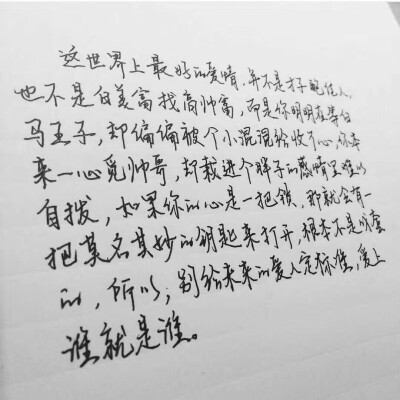 这世界上最好的爱情，并不是才子配佳人，
也不是白美富找高帅富，而是你明明在等白
马王子，却偏偏被个小混混给收了心，你本
来一心觅帅哥，却栽进个胖子的感情里难以
自拨，如果你的心是一把锁，那就会有一
把莫名其妙的钥匙来打开，根本不是成套
的，所以，别给未来的爱人定标准，爱上
谁就是谁。